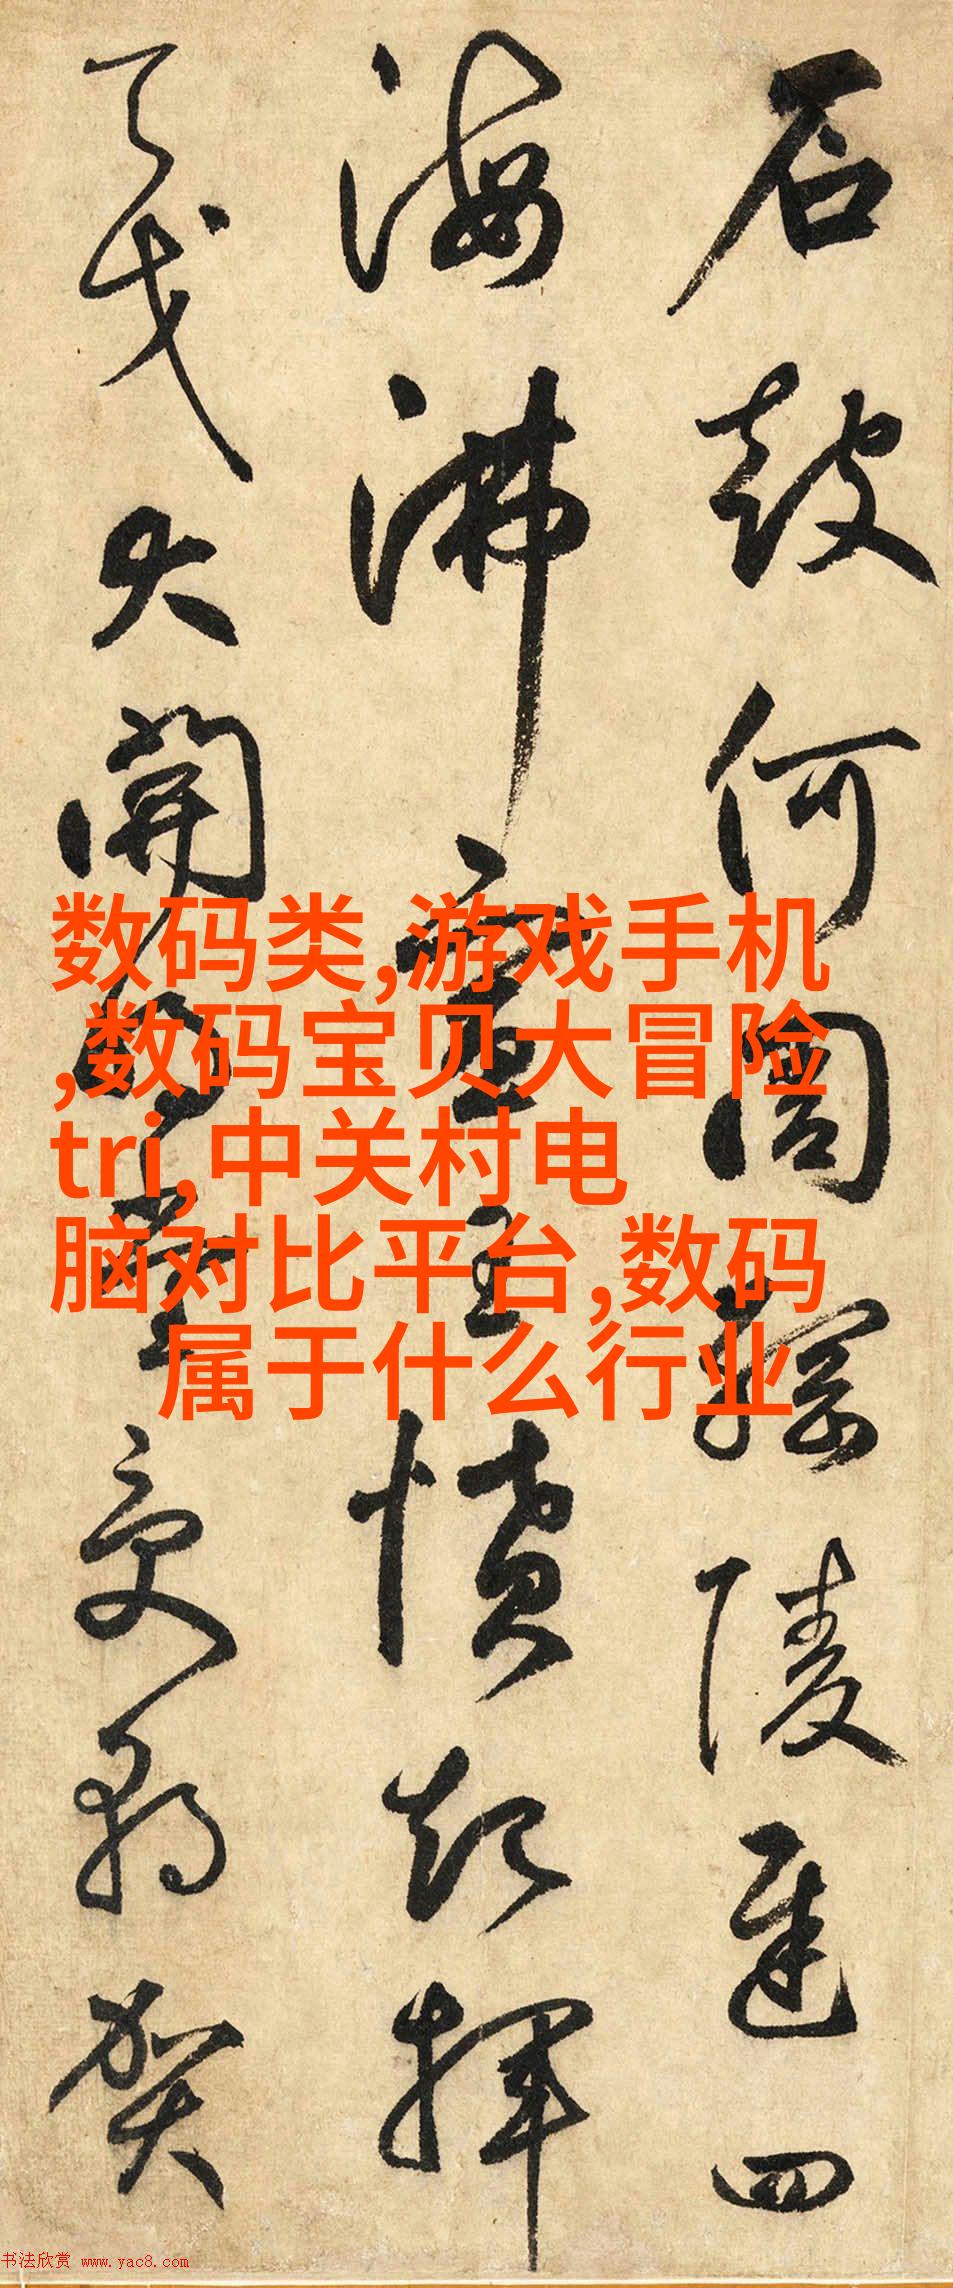 石鼓何周綱陵遲四
海沸宣王憤起揮
天戈大開明堂受朝賀
数码类,游戏手机
,数码宝贝大冒险
tri,中关村电
脑对比平台,数码
属于什么行业
书法欣赏 www.yac8.com